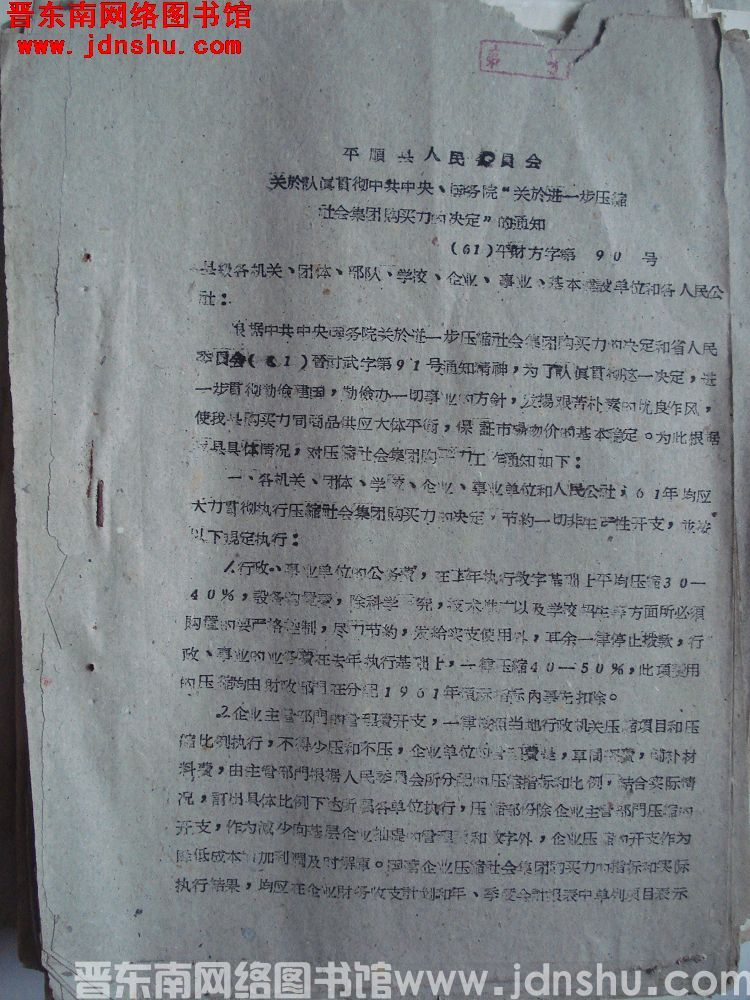 晋东南网络图书馆
www.jdnshu.com
第
平順县人民委員会
关於认真貫彻中共中央、国务院“关於进一步压縮
社会集团购买力的决定”的通知
(61)平財方字第 90 号
县級各机关、团体、部队、学校、企业、事业、基本建設单位和各人民公
社：
根据中共中央国务院关於进一步压縮社会集团购买力的决定和省人民
委員会(61)晉財武字第91号通知精神，为了认真貫彻这一决定，进
一步貫彻勤儉建国，勤儉办一切事业的方針，发揚艰苦朴素的优良作风，
使我县购买力同商品供应大体平衡，保証市場物价的基本稳定。为此根据
我县具体情况，对压縮社会集团购买力工作通知如下：
一、各机关、团体、学校、企业、事业单位和人民公社，61年均应
大力貫彻执行压縮社会集团购买力的决定，节約一切非生产性开支，並按
以下規定执行：
1.行政、事业单位的公务費，在上年执行数字基础上平均压縮30—
40%，設备购置費，除科学研究，技术推广以及学校 等方面所必須
购置的要严格控制，尽力节約，发給实支使用外，其余一律停止撥款，行
政、事业的业务費在去年执行基础上，一律压縮40—50%，此項費用
的压縮均由財政部門在分配1961年預示指标內事先扣除。
2.企业主管部門的管理費开支，一律按照当地行政机关压縮項目和压
縮比例执行，不得少压和不压，企业单位的管理費，車間 費， 补材
料費，由主管部門根据人民委員会所分配的压縮指标和比例，結合实际情
况，訂出具体比例下达所属各单位执行，压縮部份除企业主管部門压縮的
开支，作为减少向基层企业抽提的管理費和数字外，企业压縮的开支作为
降低成本增加利潤及时解庫。国营企业压縮社会集团购买力的指标和实际
执行結果，均应在企业財务收支計划和年、季度会計报表中单列項目表示
晋东南网络图书馆www.jdnshu.com